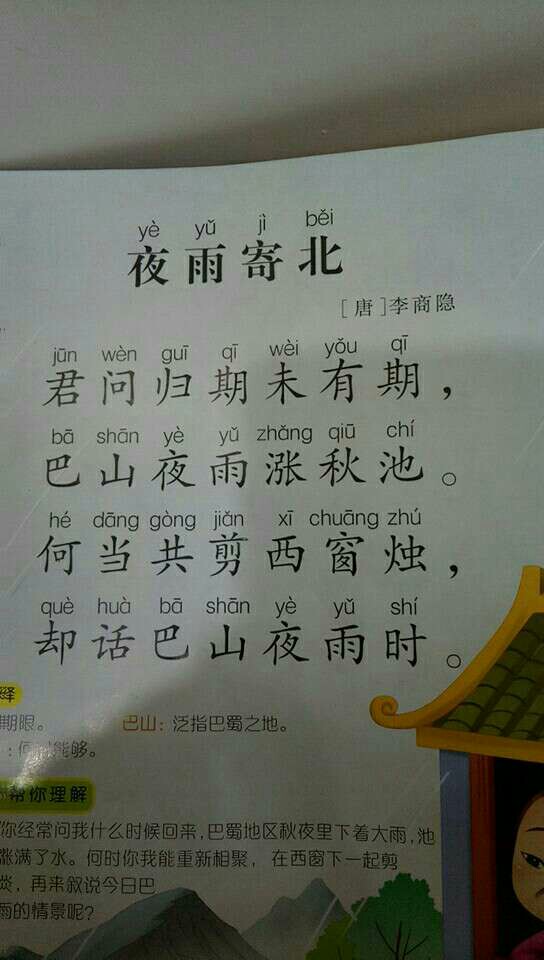 yè yǔ jì běi
夜雨寄北
[唐]李商隐
jūn wèn guī qī wèi yǒu qī
君问归期未有期，
bā shān yè yǔ zhǎng qiū chí
巴山夜雨涨秋池。
hé dāng gòng jiǎn xī chuāng zhú
何当共剪西窗烛，
què huà bā shān yè yǔ shí
却话巴山夜雨时。
释
期限。 巴山：泛指巴蜀之地。
：何时能够。
帮你理解
你经常问我什么时候回来，巴蜀地区秋夜里下着大雨，池
涨满了水。何时你我能重新相聚，在西窗下一起剪
炎，再来叙说今日巴
雨的情景呢？